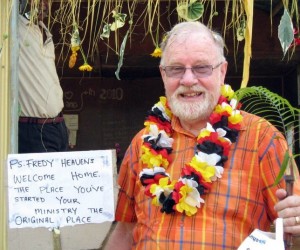 PS. FREDY HEAVENI
WELCOME HOME.
THE PLACE YOU'VE
STARTED YOUR
MINISTRY THE
ORIGINAL PLACE